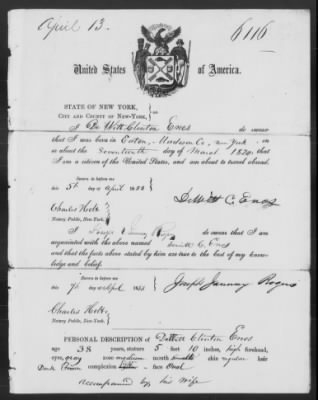 April 13.
6116
United States of America.
STATE OF NEW YORK,
CITY AND COUNTY OF NEW-YORK, ss
I De Witt Clinton Enos do swear
that I was born in Eaton, Madison Co, New York on
or about the Seventeenth day of March 1820; that
I am a citizen of the United States, and am about to travel abroad.
Sworn to before me
this 5th day of April 1858
DeWitt C. Enos
Charles Holt
Notary Public, New-York.
I Joseph Rogers do swear that I am
acquainted with the above named Dewitt C. Enos
and that the facts above stated by him are true to the best of my know-
ledge and belief.
Sworn to before me
this 7th day of April 1858
Joseph Rogers
Charles Holt
Notary Public, New-York.
PERSONAL DESCRIPTION OF DeWitt Clinton Enos
age 38 years, stature 5 feet 10 inches, high forehead,
eyes, gray nose medium mouth skin regular hair
Dark Brown complexion face Oval
accompanied by his Wife